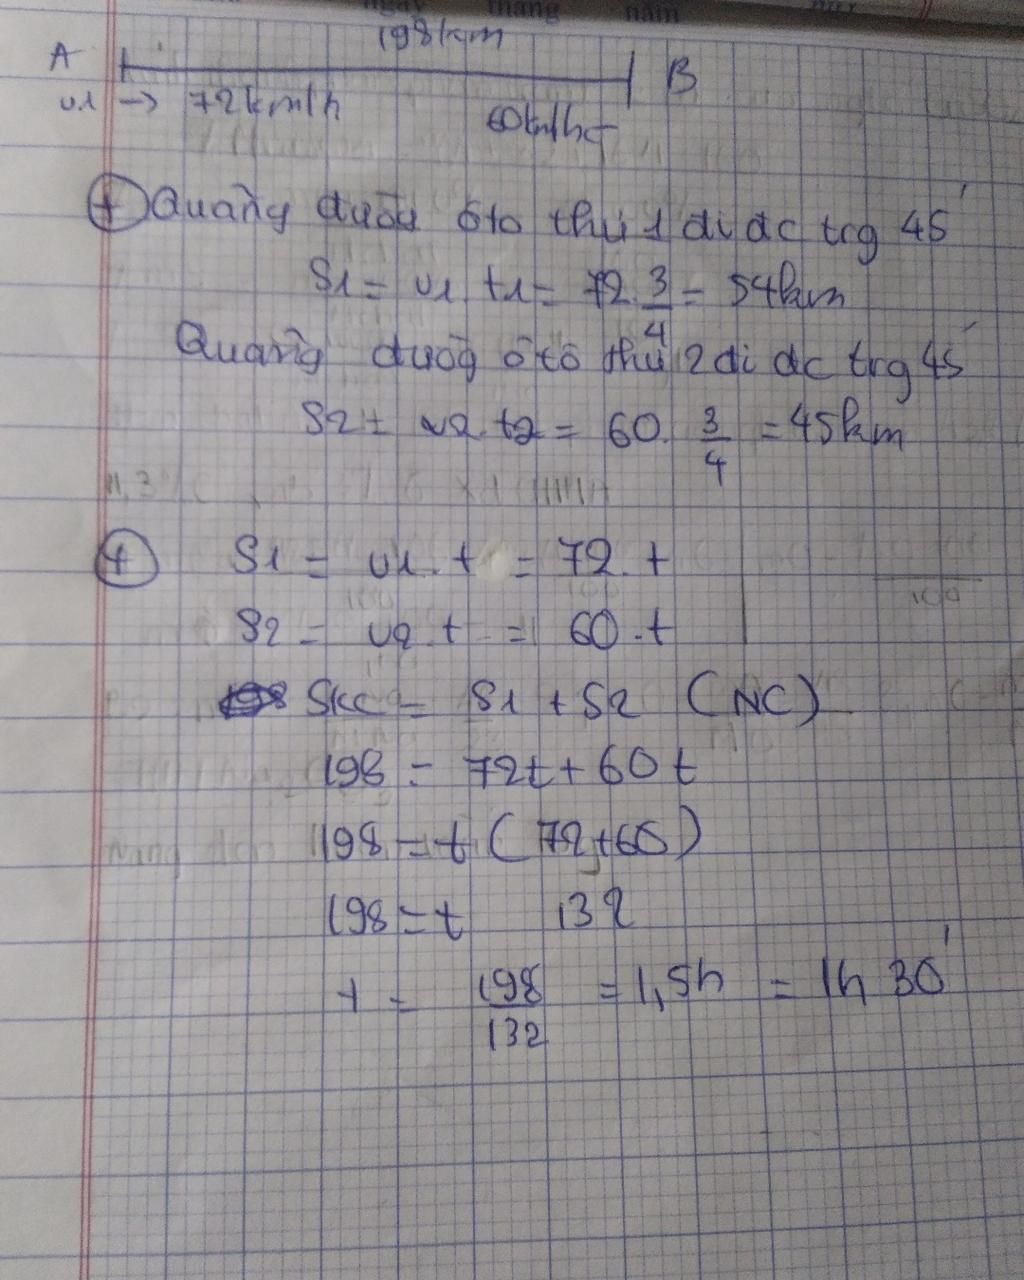 ngày tháng năm
198km
A B
v1 → 72km/h 60km/h ←
+ Quãng đường ôto thứ 1 đi đc trg 45'
S1 = v1 t1 = 72. 3/4 = 54km
Quãng đường ôtô thứ 2 đi đc trg 45'
S2 = v2. t2 = 60. 3/4 = 45km
+ S1 = v1. t = 72. t
S2 = v2. t = 60. t
Skc = S1 + S2 (NC)
198 = 72t + 60t
198 = t (72+60)
198 = t 132
t = 198/132 = 1,5h = 1h 30'